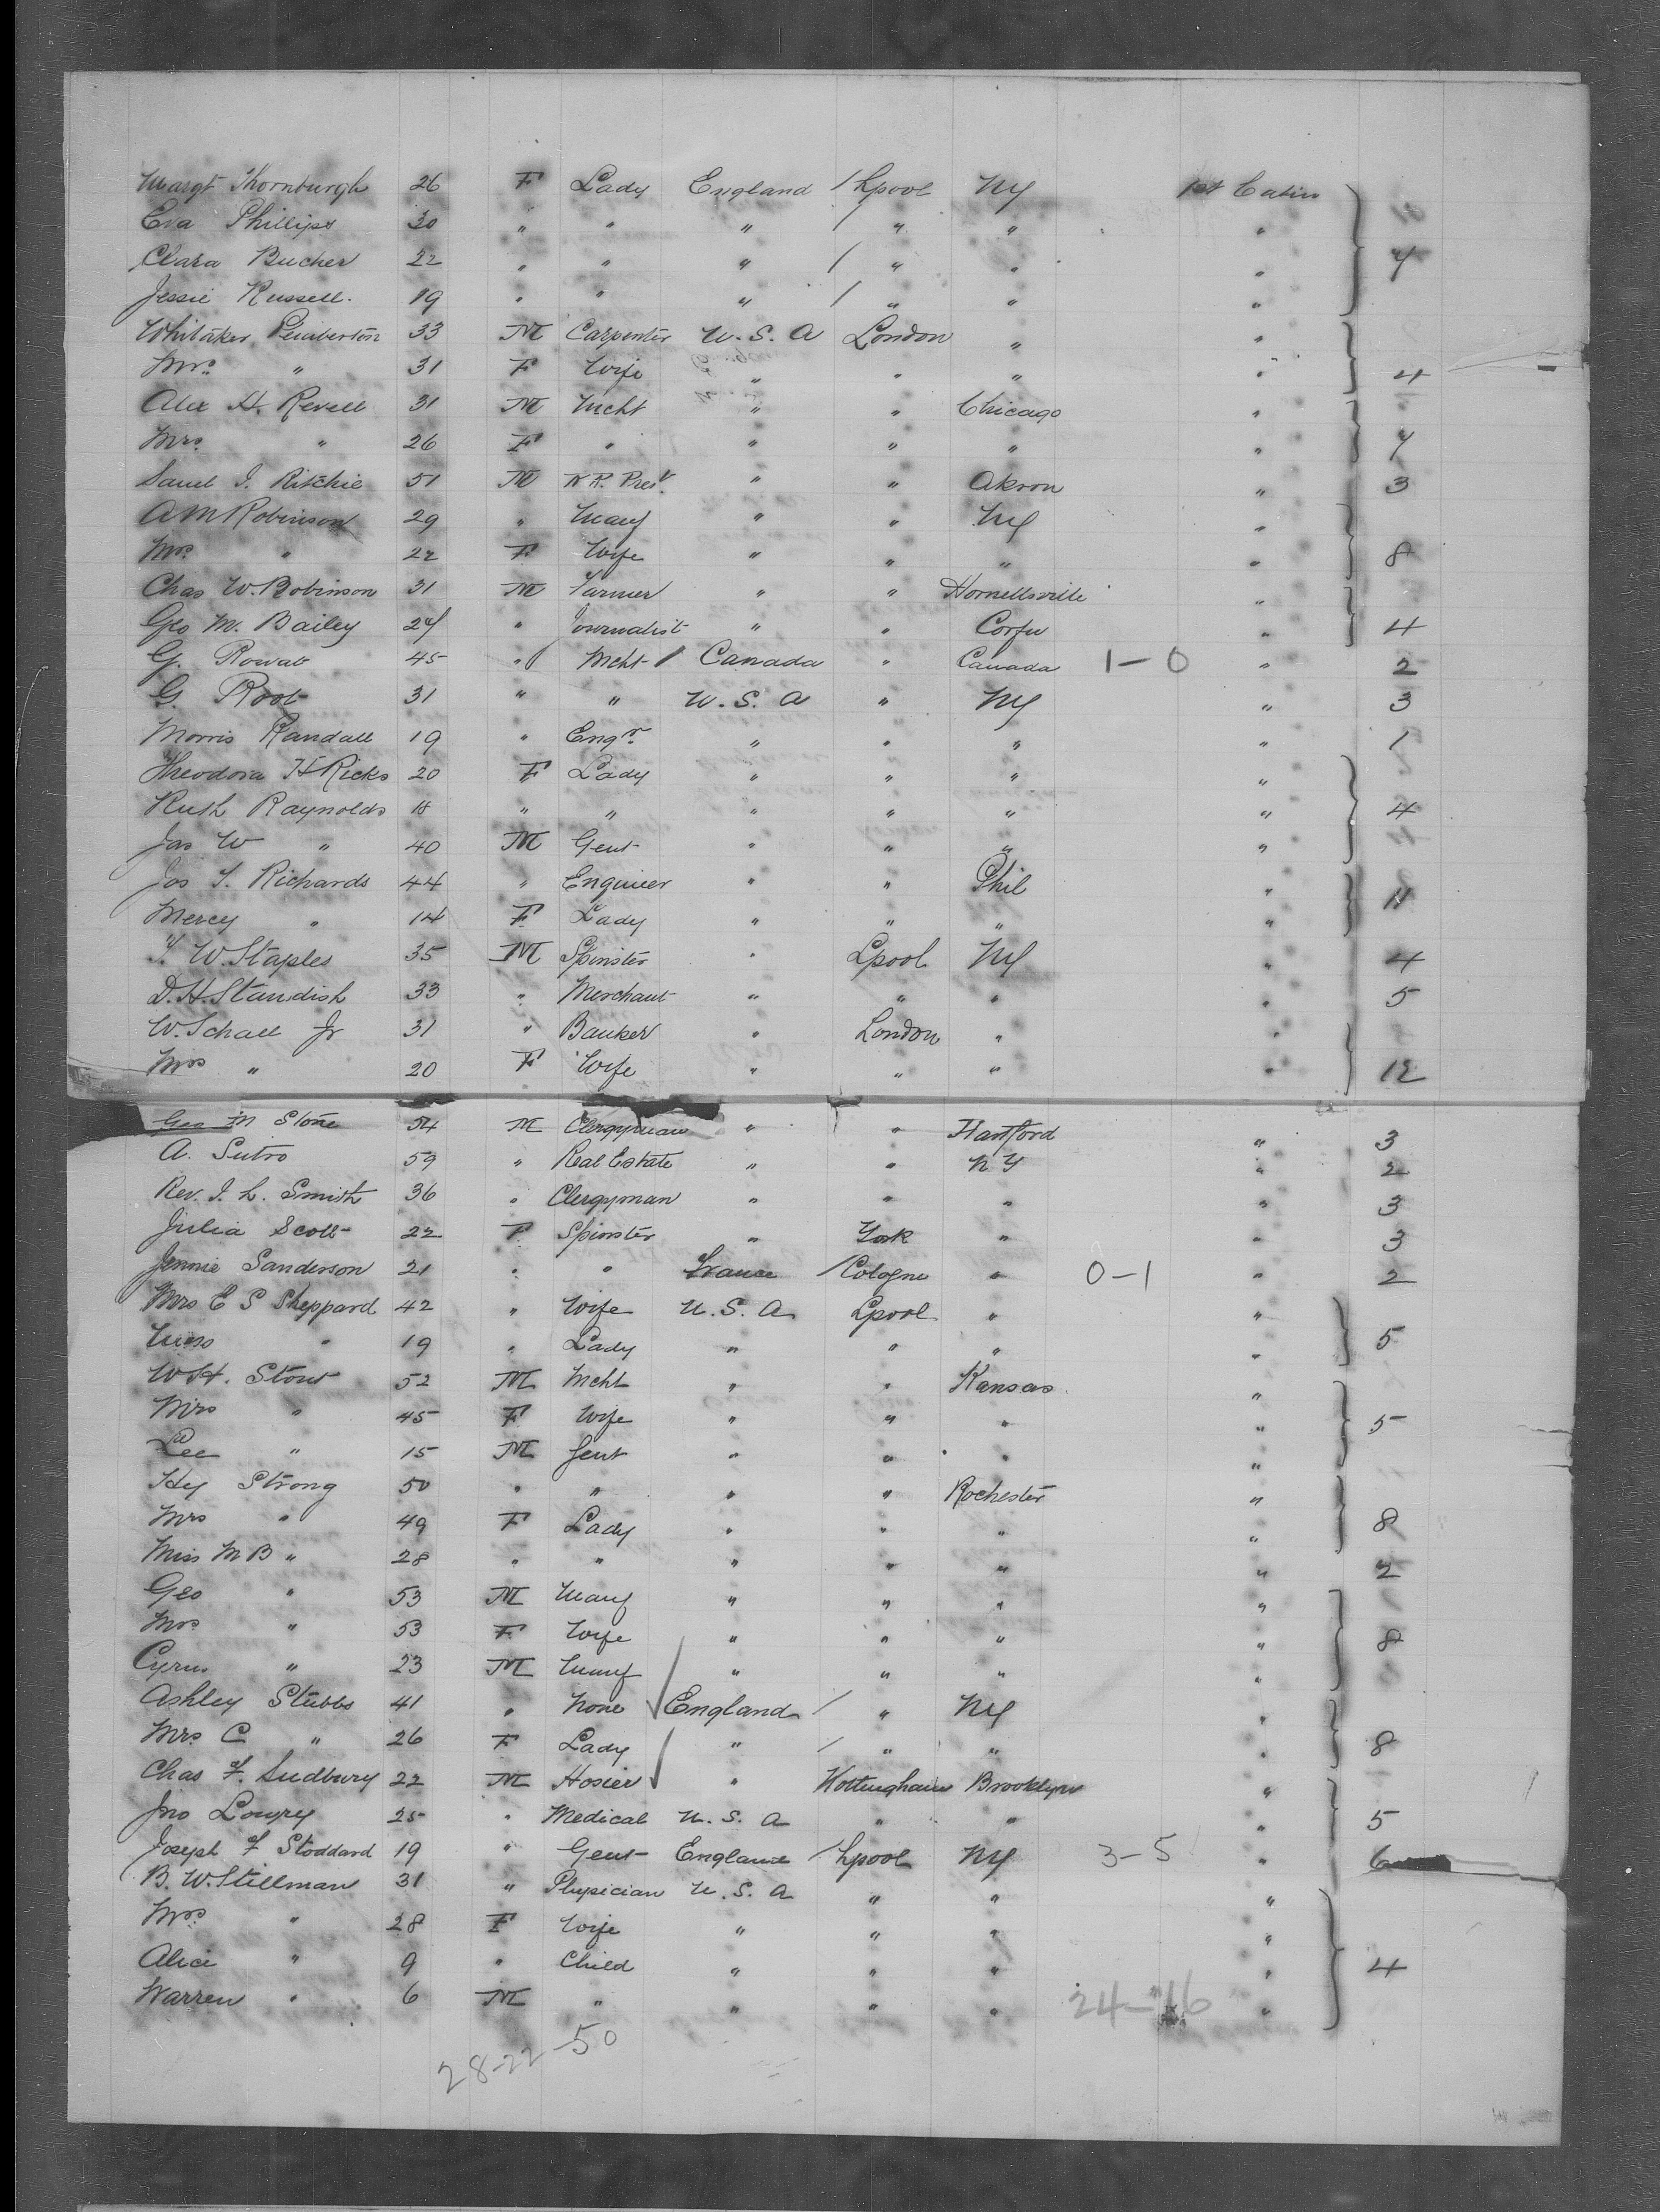 Margt Thornburgh 26 F Lady England / Lpool NY 1st Cabin
Eva Phillips 30 " " " / " " "
Clara Bucher 22 " " " / " " " 4
Jessie Russell. 19 " " " / " " "
Whitaker Pemberton 33 M Carpenter U.S.A London " "
Mrs. " 31 F Wife " " " " 4
Alex H. Revell 31 M Mcht " " Chicago "
Mrs. " 26 F " " " " " 4
Saml J. Ritchie 51 M R.R. Prest. " " Akron " 3
A M Robinson 29 " Manf " " NY "
Mrs. " 22 F Wife " " " " 8
Chas W. Robinson 31 M Farmer " " Hornellsville "
Geo M. Bailey 24 " Journalist " " Corfu " 4
G. 45 " Mcht / Canada " Canada 1-0 " 2
G. Root 31 " " U.S.A " NY " 3
Morris Randall 19 " Engr. " " " " 1
Theodora H Ricks 20 F Lady " " " "
Ruth Raynolds 18 " " " " " " 4
Jas W " 40 M Gent " " " "
Jos T. Richards 44 " Engineer " " Phil " 11
Mercy " 14 F Lady " " " "
W. Staples 35 M Spinster " Lpool NY " 4
D.H. Standish 33 " Merchant " " " " 5
W. Schall Jr 31 " Banker " London " "
Mrs " 20 F Wife " " " " 12
Geo M Stone 54 M Clergyman " " Hartford " 3
A. Sutro 59 " Real Estate " " NY " 2
Rev. J. L. Smith 36 " Clergyman " " " " 3
Julia Scott 22 F Spinster " York " " 3
Jennie Sanderson 21 " " France / Cologne " 0-1 " 2
Mrs E S Sheppard 42 " Wife U.S.A Lpool " "
Miss " 19 " Lady " " " " 5
W H. Stout 52 M Mcht " " Kansas. "
Mrs " 45 F Wife " " " " 5
Lee " 15 M Gent " " " "
Hy Strong 50 " " " " Rochester "
Mrs " 49 F Lady " " " " 8
Miss M B " 28 " " " " " " 2
Geo " 53 M Manf " " " "
Mrs " 53 F Wife " " " " 8
Cyrus " 23 M Manf " " " "
Ashley Stubbs 41 " None England / " NY "
Mrs C " 26 F Lady " / " " " 8
Chas F. Sudbury 22 M Hosier " Nottingham Brooklyn "
Jno Lowry 25 " Medical U.S.A " " " 5
Joseph F Stoddard 19 " Gent England / Lpool NY 3-5 " 6
B. W. Stillman 31 " Physician U.S.A " " "
Mrs. " 28 F Wife " " " "
Alice " 9 " Child " " " " 4
Warren " 6 M " " " " 24-16 "
28-22-50